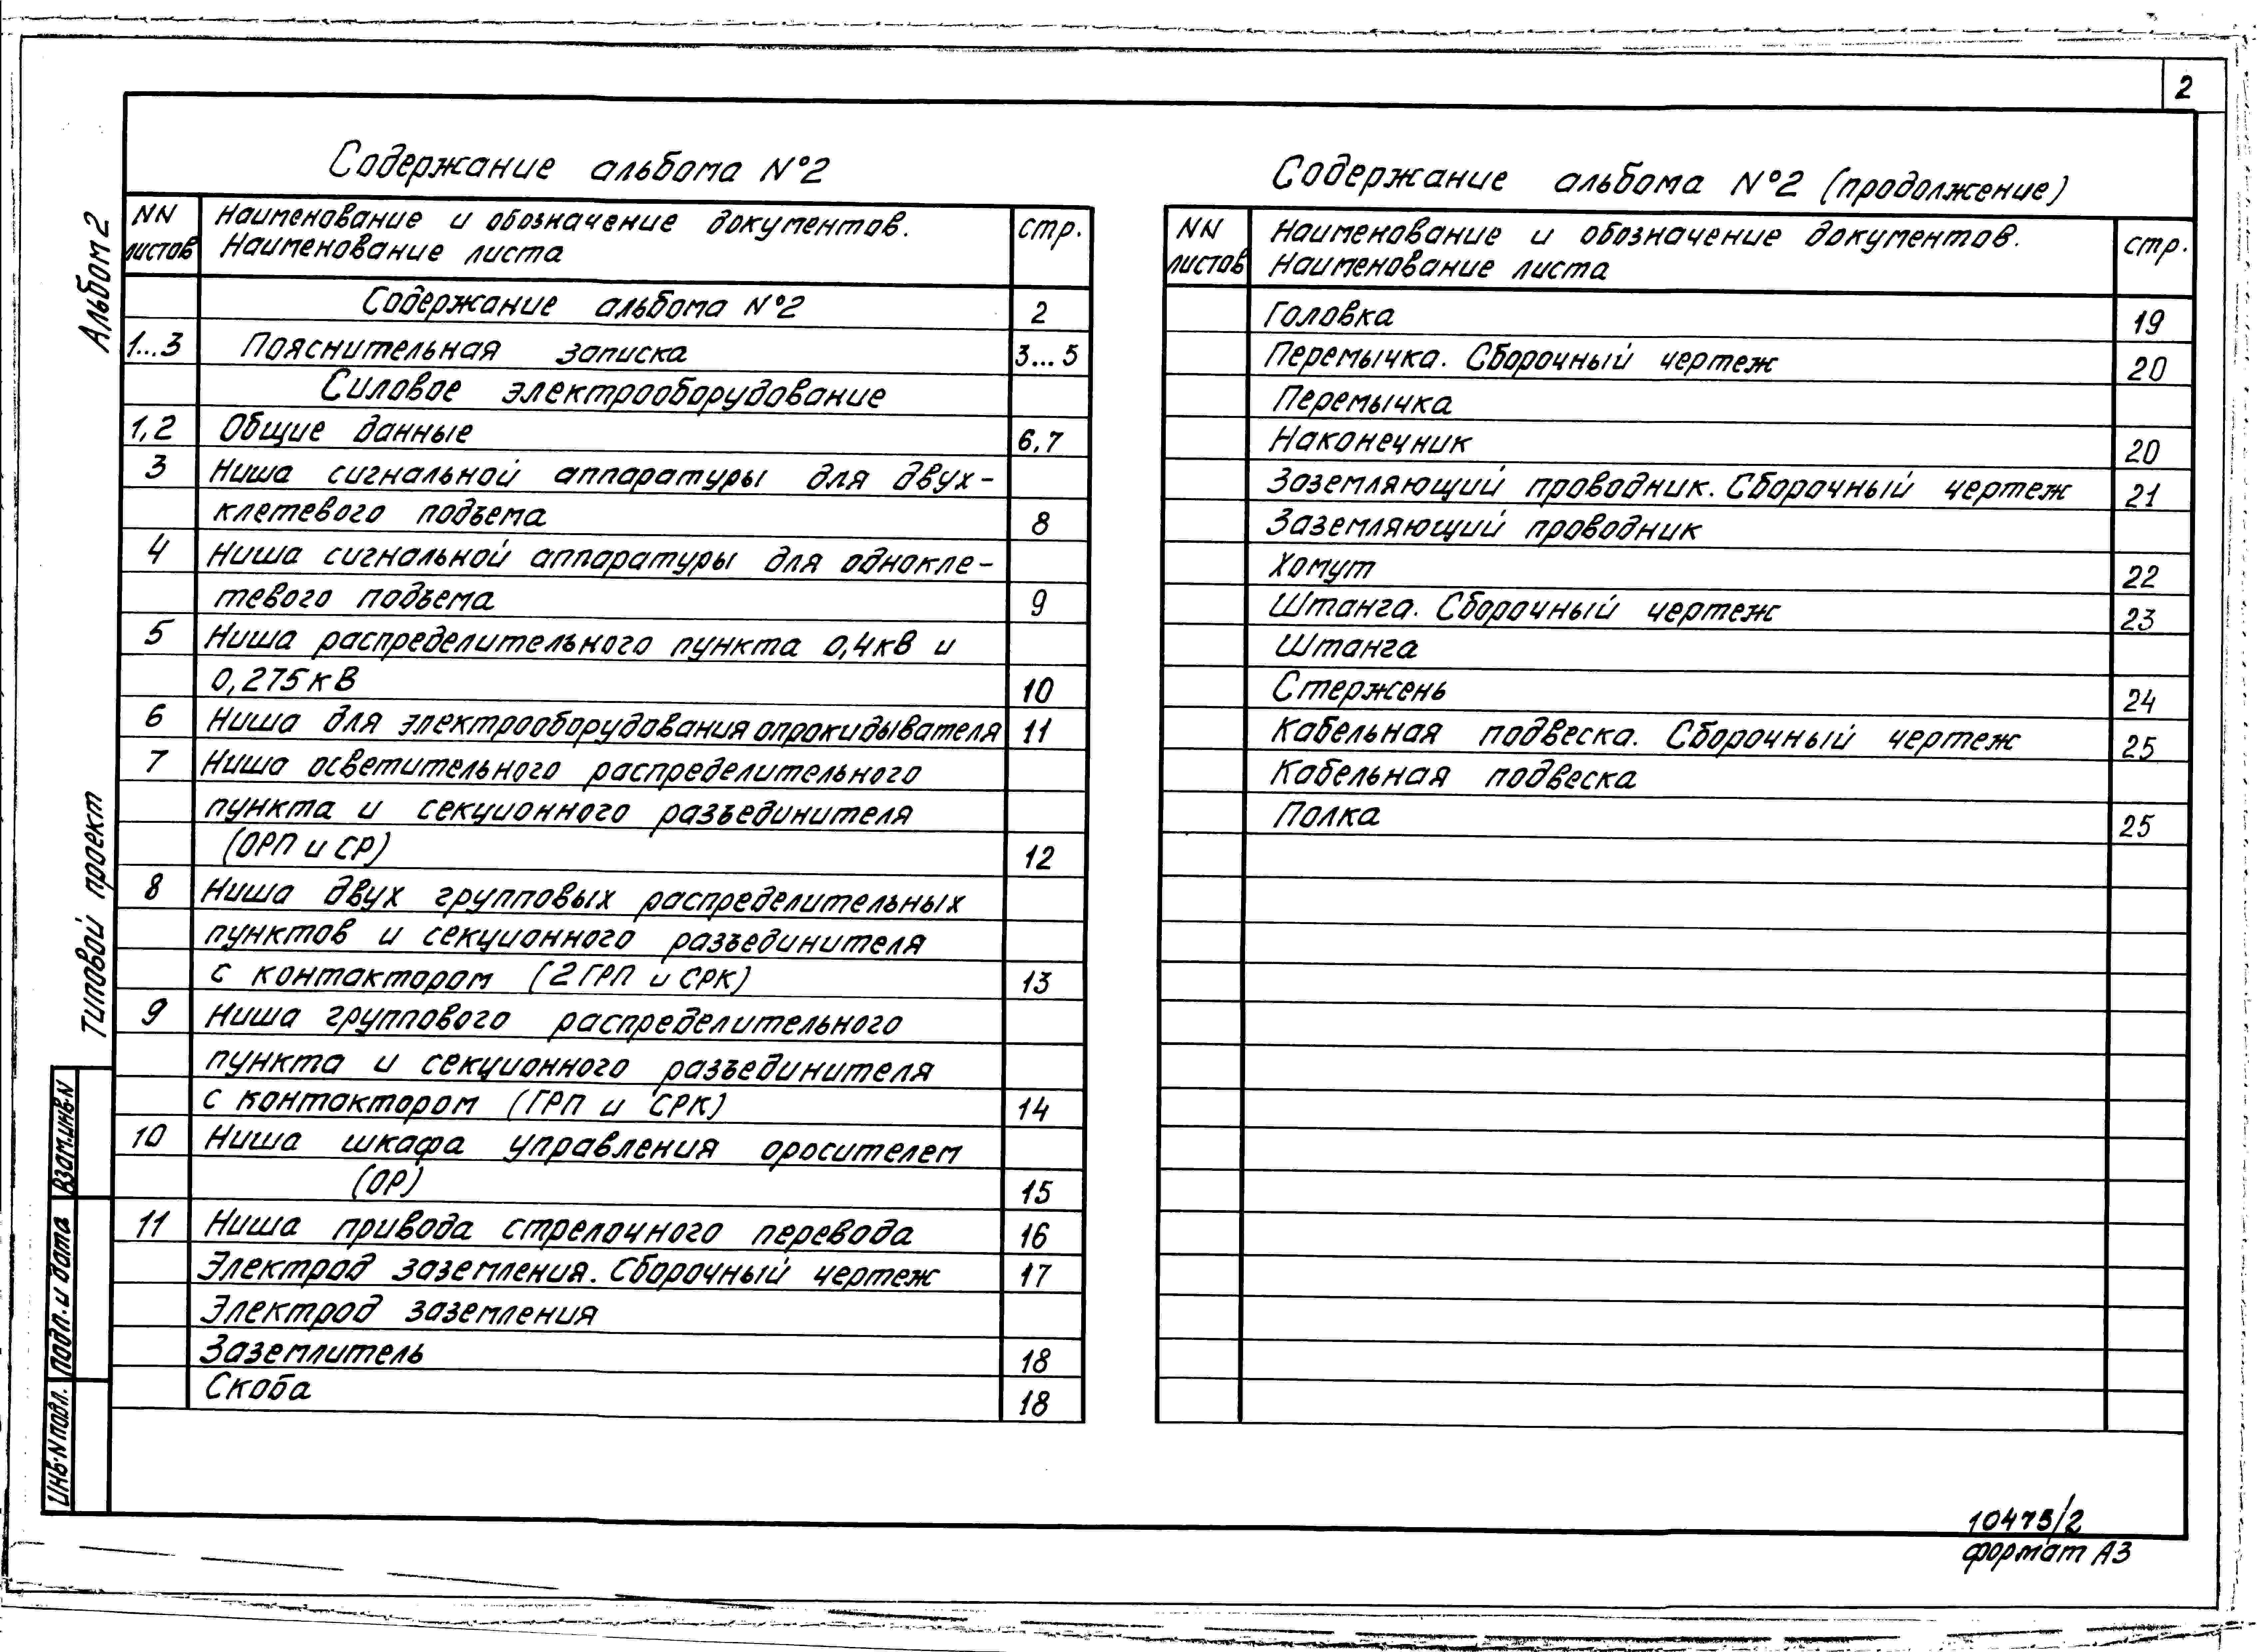 2
Содержание альбома №2
NN листов
Наименование и обозначение документов.
Наименование листа
стр.
Содержание альбома №2 2
1...3 Пояснительная записка 3...5
Силовое электрооборудование
1,2 Общие данные 6,7
3 Ниша сигнальной аппаратуры для двух-
клетевого подъема 8
4 Ниша сигнальной аппаратуры для однокле-
тевого подъема 9
5 Ниша распределительного пункта 0,4кВ и
0,275кВ 10
6 Ниша для электрооборудования опрокидывателя 11
7 Ниша осветительного распределительного
пункта и секционного разъединителя
(ОРП и СР) 12
8 Ниша двух групповых распределительных
пунктов и секционного разъединителя
с контактором (2ГРП и СРК) 13
9 Ниша группового распределительного
пункта и секционного разъединителя
с контактором (ГРП и СРК) 14
10 Ниша шкафа управления оросителем
(ОР) 15
11 Ниша привода стрелочного перевода 16
Электрод заземления. Сборочный чертеж 17
Электрод заземления
Заземлитель 18
Скоба 18
Содержание альбома №2 (продолжение)
NN листов
Наименование и обозначение документов.
Наименование листа
стр.
Головка 19
Перемычка. Сборочный чертеж 20
Перемычка
Наконечник 20
Заземляющий проводник. Сборочный чертеж 21
Заземляющий проводник
Хомут 22
Штанга. Сборочный чертеж 23
Штанга
Стержень 24
Кабельная подвеска. Сборочный чертеж 25
Кабельная подвеска
Полка 25
Альбом 2
Типовой проект
Взам.инв.N
Подп. и дата
Инв.N подл.
10475/2
формат А3